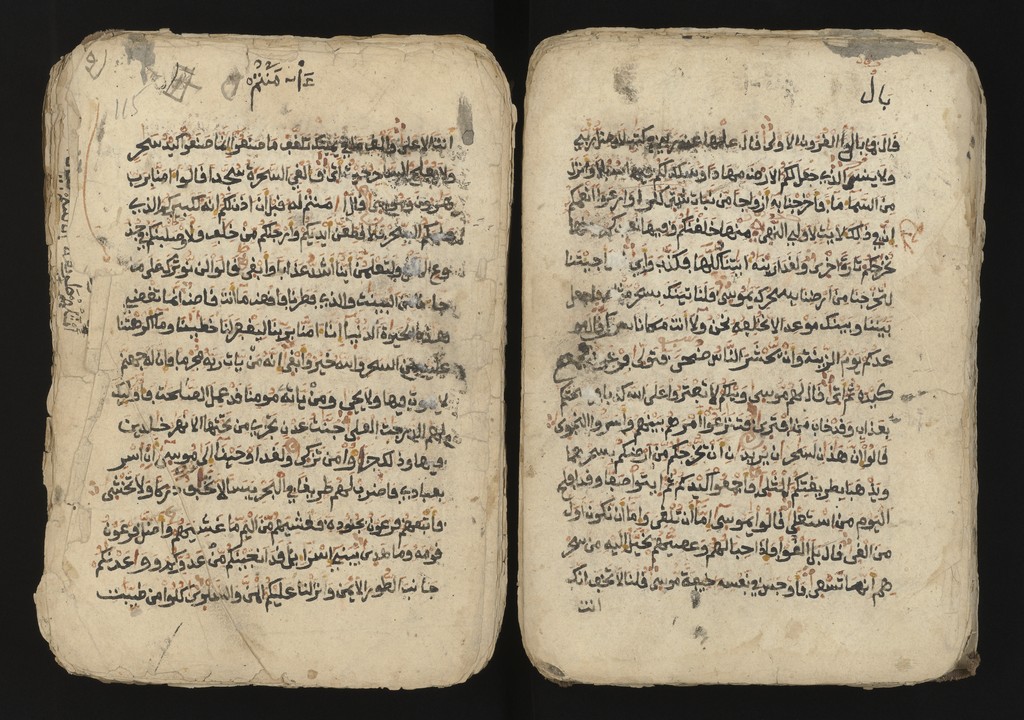 بال
قال فما بال القرون الاولى قال علمها عند ربي في كتب لا يضل ربي
ولا ينسى الذي جعل لكم الارض مهدا وسلك لكم فيها سبلا وانزل
من السماء ماء فاخرجنا به ازوجا من نبات شتى كلوا وارعوا انعمكم
ان في ذلك لايت لاولي النهى منها خلقنكم وفيها نعيدكم ومنها
نخرجكم تارة اخرى ولقد ارينه ايتنا كلها فكذب وابى قال اجيتنا
لتخرجنا من ارضنا بسحرك يموسى فلناتينك بسحر مثله فاجعل
بيننا وبينك موعدا لا نخلفه نحن ولا انت مكانا سوى قال مو
عدكم يوم الزينة وان يحشر الناس ضحى فتولى فرعون فجمع
كيده ثم اتى قال لهم موسى ويلكم لا تفتروا على الله كذبا فيسحتكم
بعذاب وقد خاب من افترى فتنزعوا امرهم بينهم واسروا النجوى
قالوا ان هذان لسحران يريدان ان يخرجكم من ارضكم بسحرهما
ويذهبا بطريقتكم المثلى فاجمعوا كيدكم ثم ايتوا صفا وقد افلح
اليوم من استعلى قالوا يموسى اما ان تلقى واما ان نكون اول
من القى قال بل القوا فاذا حبالهم وعصيهم يخيل اليه من سحر
هم انها تسعى فاوجس في نفسه خيفة موسى قلنا لا تخف انك
انت
ءامنتم
115
انت الاعلى والق ما في يمينك تلقف ما صنعوا انما صنعوا كيد سحر
ولا يفلح الساحر حيث اتى فالقي السحرة سجدا قالوا امنا برب
هرون وموسى قال امنتم له قبل ان اذن لكم انه لكبيركم الذي
علمكم السحر فلاقطعن ايديكم وارجلكم من خلف ولاصلبنكم في جذ
وع النخل ولتعلمن اينا اشد عذابا وابقى قالوا لن نوثرك على ما
جاءنا من البينت والذي فطرنا فاقض ما انت قاض انما تقضي
هذه الحيوة الدنيا انا امنا بربنا ليغفر لنا خطيينا وما اكرهتنا
عليه من السحر والله خير وابقى انه من يات ربه مجرما فان له جهنم
لا يموت فيها ولا يحيى ومن ياته مومنا قد عمل الصلحت فاوليك
لهم الدرجت العلى جنت عدن تجري من تحتها الانهر خلدين
فيها وذلك جزاوا من تزكى ولقد اوحينا الى موسى ان اسر
بعبادي فاضرب لهم طريقا في البحر يبسا لا تخف دركا ولا تخشى
فاتبعهم فرعون بجنوده فغشيهم من اليم ما غشيهم واضل فرعون
قومه وما هدى يبني اسرايل قد انجينكم من عدوكم ووعدنكم
جانب الطور الايمن ونزلنا عليكم المن والسلوى كلوا من طيبت